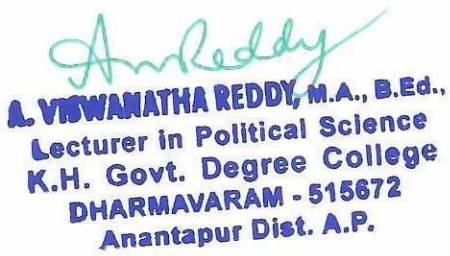 AmReddy
A. VISWANATHA REDDY, M.A., B.Ed.,
Lecturer in Political Science
K.H. Govt. Degree College
DHARMAVARAM - 515672
Anantapur Dist. A.P.